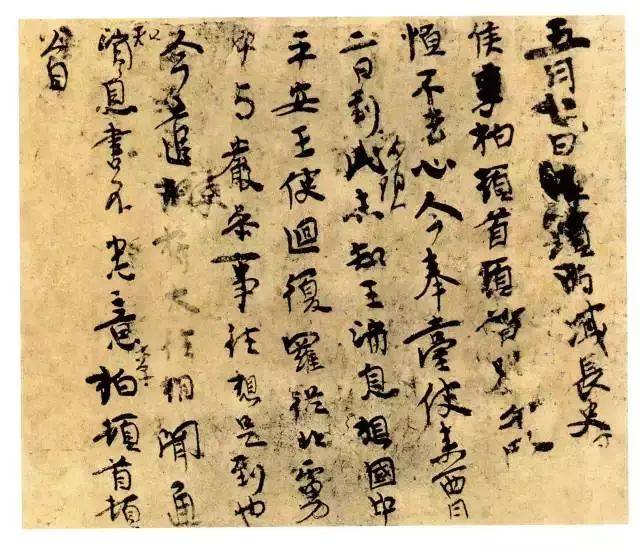 五月七日西域長史
侯李柏頓首頓首別
恒不去心今奉臺使來西月
二日到此未知王消息想國中
平安王使迴復羅從北虜
中与嚴參事往想是到也
今遣使苻大往相聞通
知消息書不悉意李柏頓首頓
首